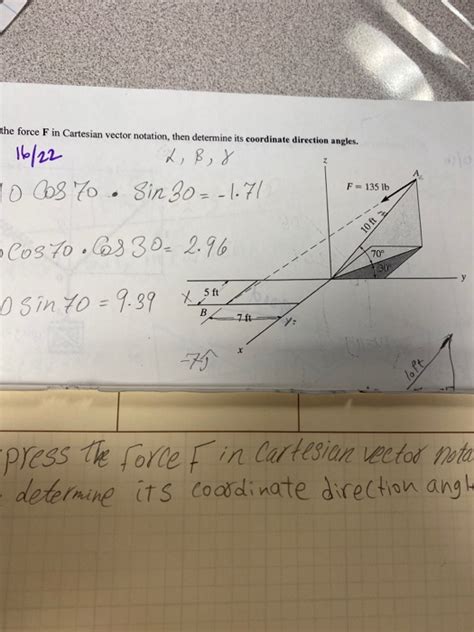 the force F in Cartesian vector notation, then determine its coordinate direction angles.
16/22
α, β, γ
z
0 Cos 70 · Sin 30 = -1.71
A
F = 135 lb
10 ft
Cos 70 · Cos 30 = 2.96
70°
30°
y
0 Sin 70 = 9.39
5 ft
B
7 ft
x
10ft
press The force F in Cartesian vector nota
determine its coordinate direction angle